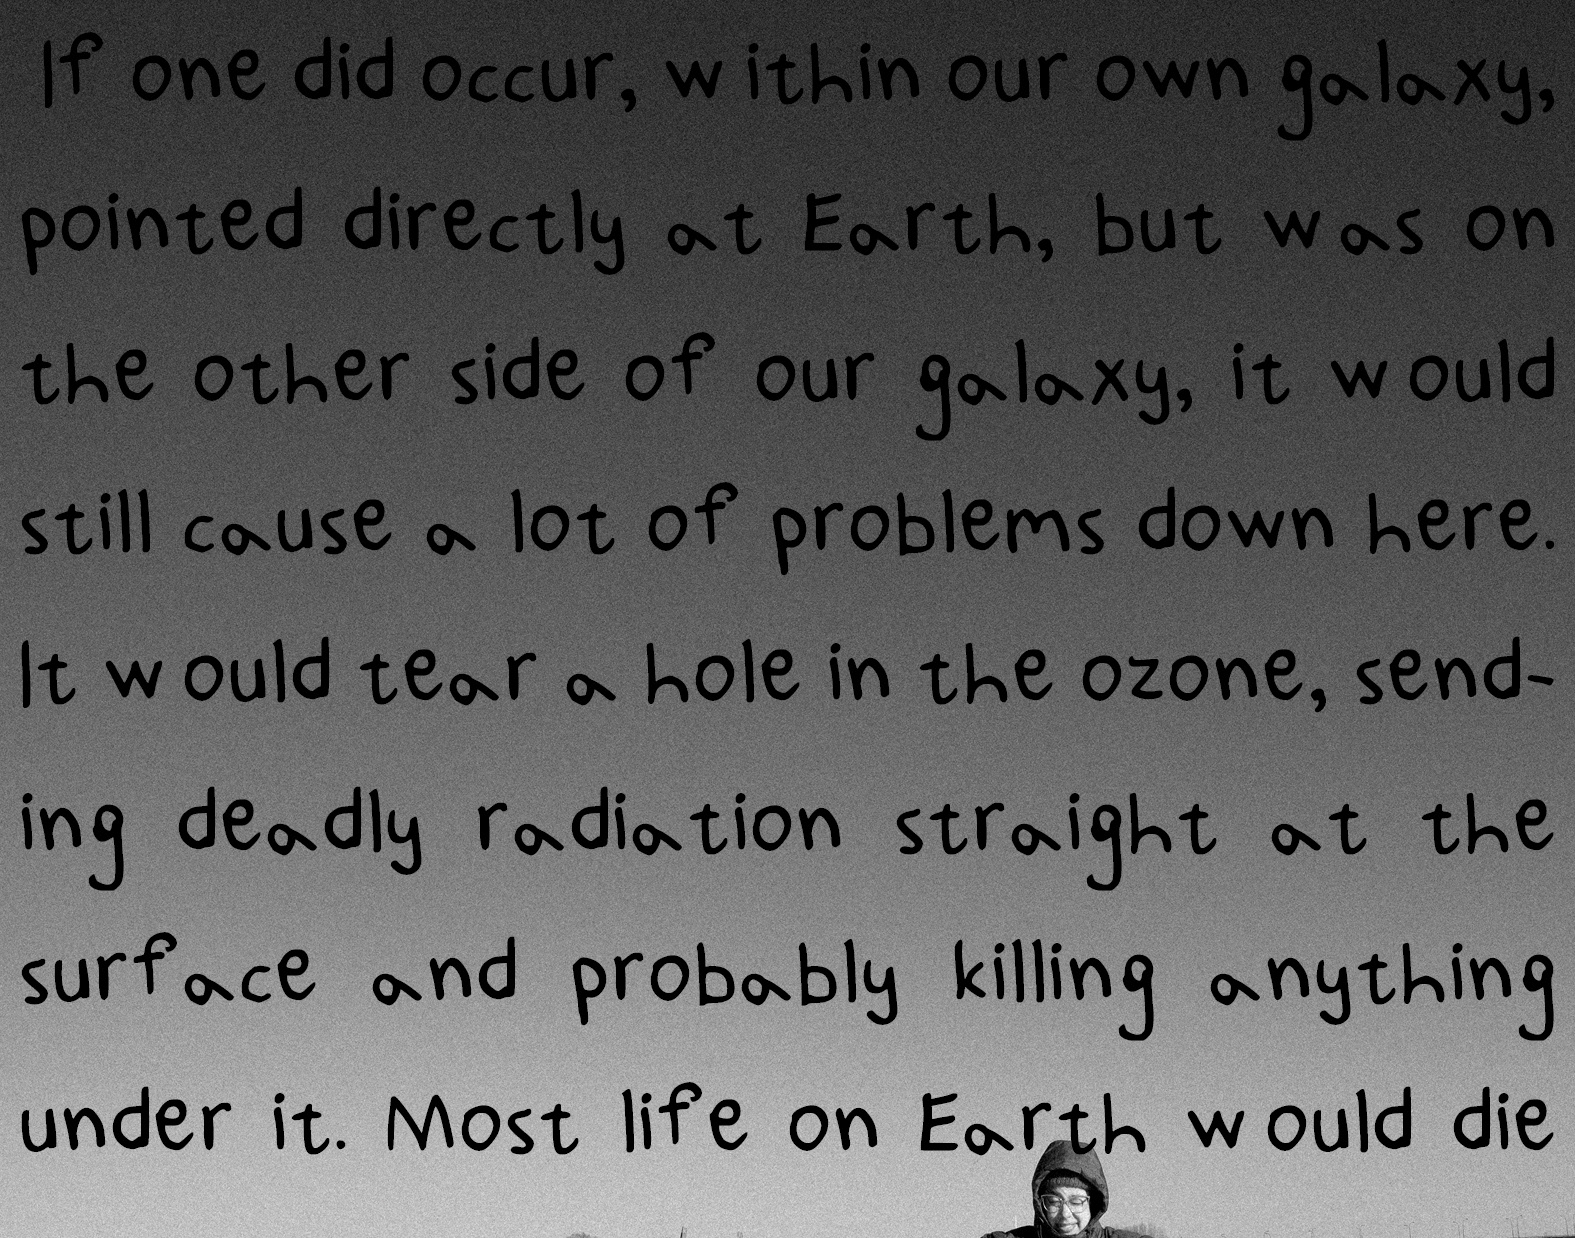 If one did occur, within our own galaxy,
pointed directly at Earth, but was on
the other side of our galaxy, it would
still cause a lot of problems down here.
It would tear a hole in the ozone, send-
ing deadly radiation straight at the
surface and probably killing anything
under it. Most life on Earth would die